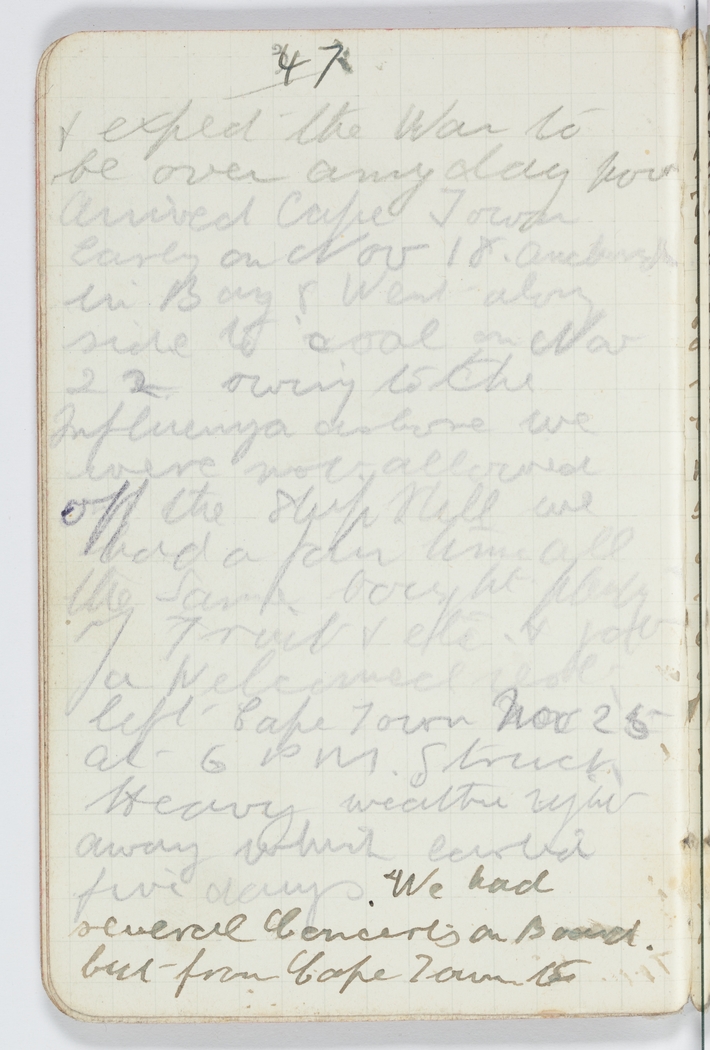 47
& expect the War to
be over any day now
Arrived Cape Town
early on Nov 18. anchored
in Bay & Went along
side to coal on Nov
22 owing to the
Influenza ashore we
were not allowed
off the Ship Still we
had a fair time all
the same bought plenty
of Fruit & etc & got
a Welcomed rest
left Cape Town Nov 25
at 6 PM. Struck
Heavy weather right
away which lasted
five days. We had
several Concerts on Board.
but from Cape Town to